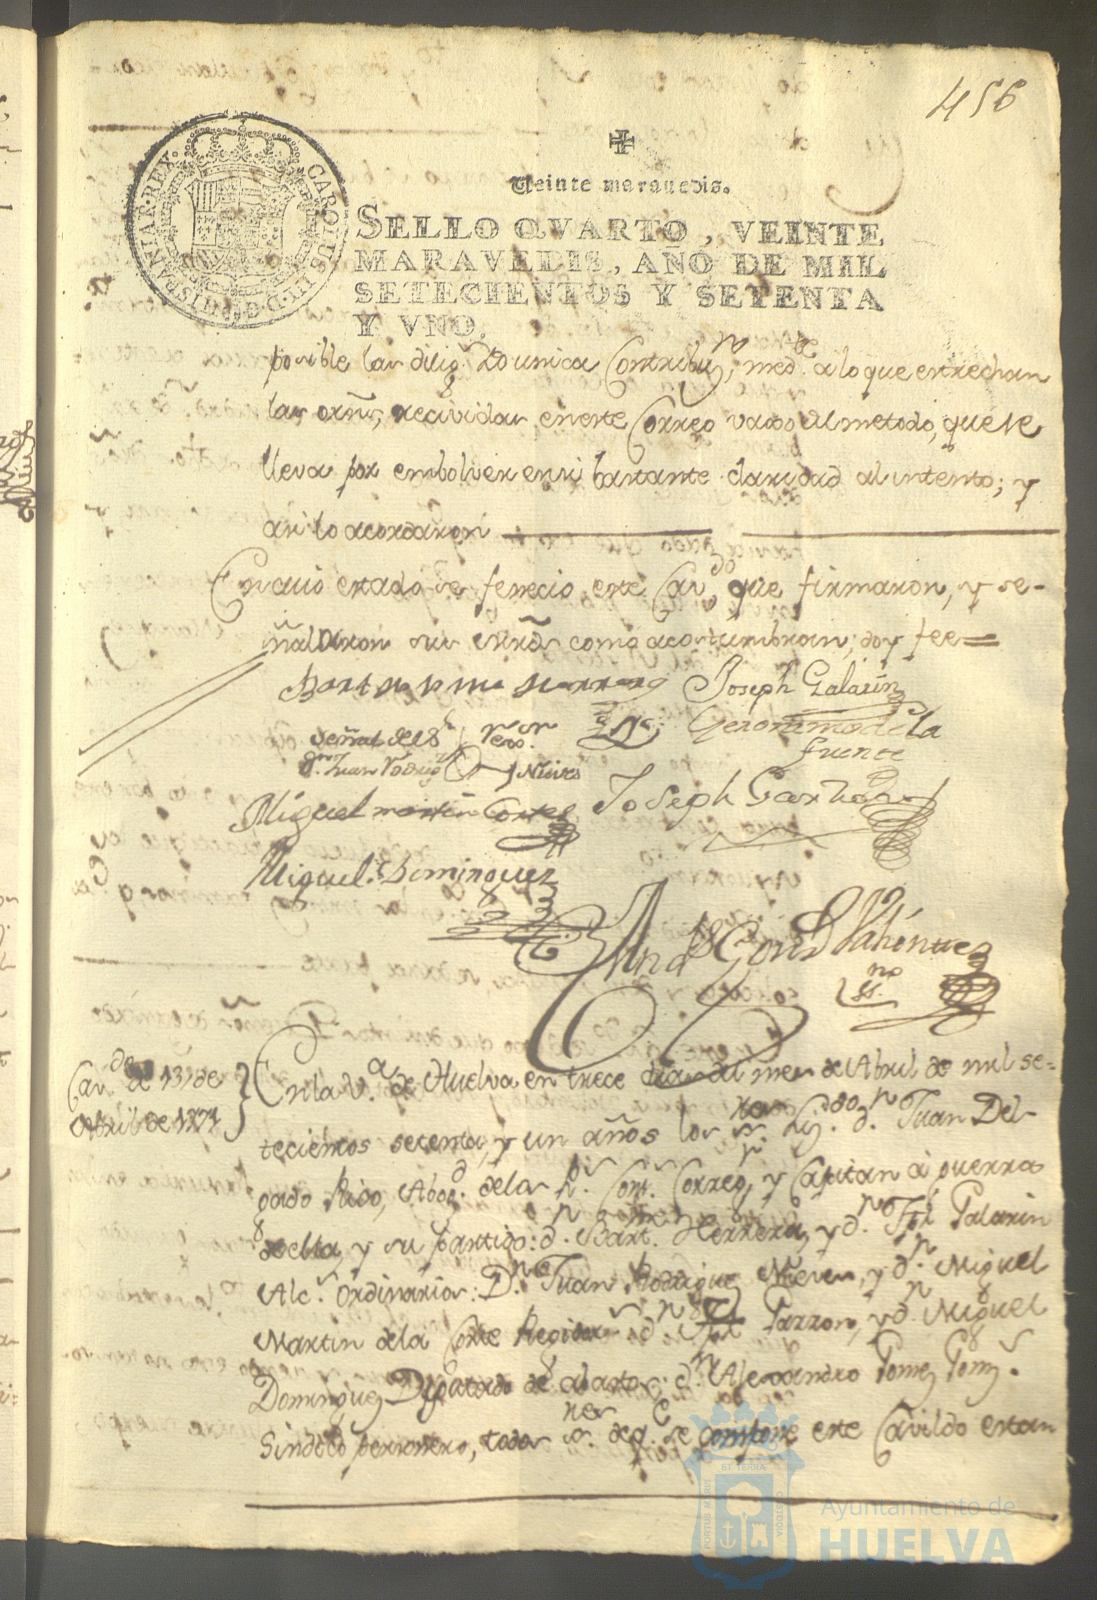 456
Veinte maravedis.
SELLO QVARTO, VEINTE
MARAVEDIS, AÑO DE MIL
SETECIENTOS Y SETENTA
Y VNO.
CAROLUS III D G HISPANIAR REX
posible las dilig.s de unica Contribuz.n, med.te a lo que estrechan
las orns, recividas en este Correo vajo el metodo, que se
lleva por embolver en si bastante claridad al intento; y
asi lo acordaron
En cuio estado se fenecio este Cav.do que firmaron, y se-
ñalaron sus mrds como acostumbran; doy fee=
Bartolome Herrera Joseph Galarin
Señal del S.or Rexor.
Geronimo de la
fuente
d.n Juan Rodrig.z Nieves
Miguel martin Cortes Joseph Garzon
Miguel Dominguez
And.s Gons.l Valiente
ss.no
Cav.do de 13 de
Abril de 1771
En la V.a de Huelva en trece dias del mes de Abril de mil se-
tecientos setenta, y un años los ss.res Liz.do d.n Juan Del-
gado Rido, Abog.do de los R.s Cons.s Correg.r y Capitan à guerra
de ella, y su partido: d.n Bart.me Herrera, y d.n Jph Galarin
Alc.s ordinarios: D.n Juan Rodrigues Nieves, y d.n Miguel
Martin de la Corte Regidores: d.n Jph Garzon, y d.n Miguel
Dominguez Diputado de abastos: d.n Alexandro Gomez
Sindico personero, todos ss.res de q.e se compone este Cavildo estan
PORTUS MARIS
ET TERRÆ
CUSTODIA
Ayuntamiento de
HUELVA